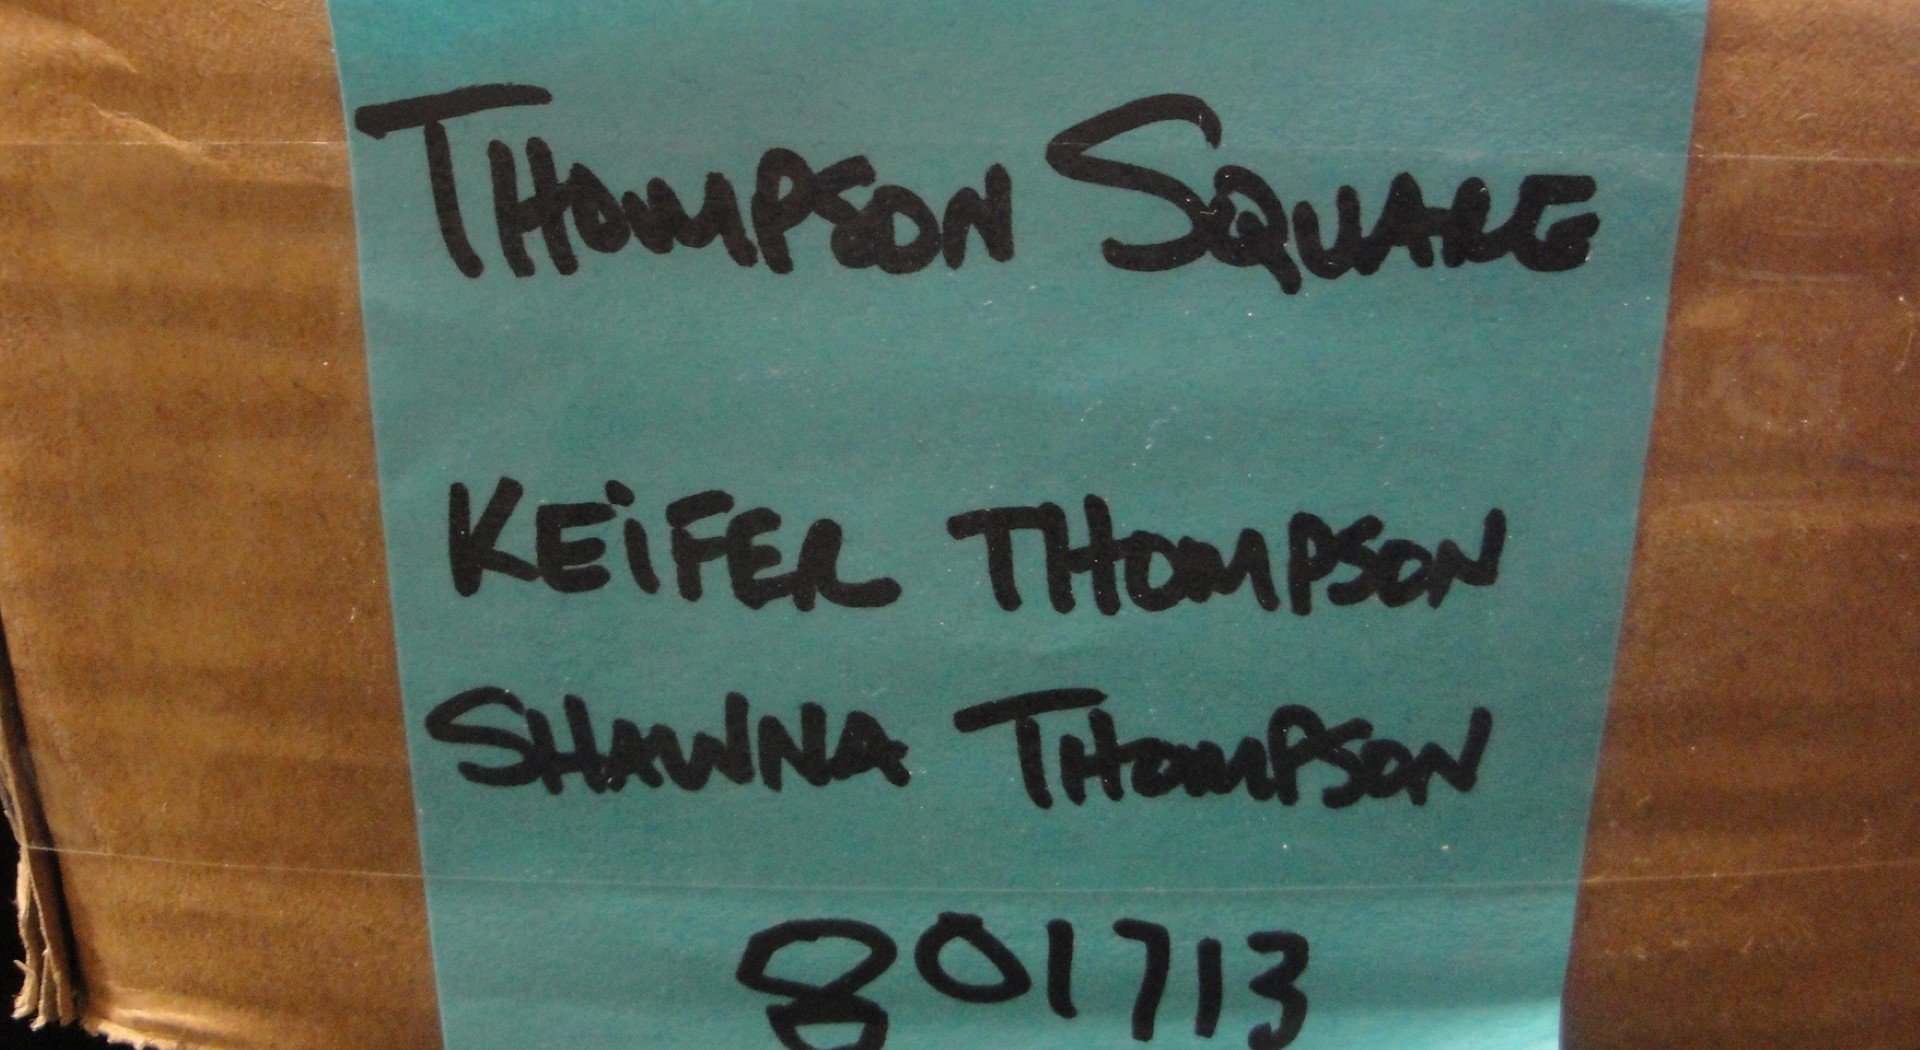 THOMPSON SQUARE
KEiFER THOMPSON
SHAWNA THOMPSON
801713